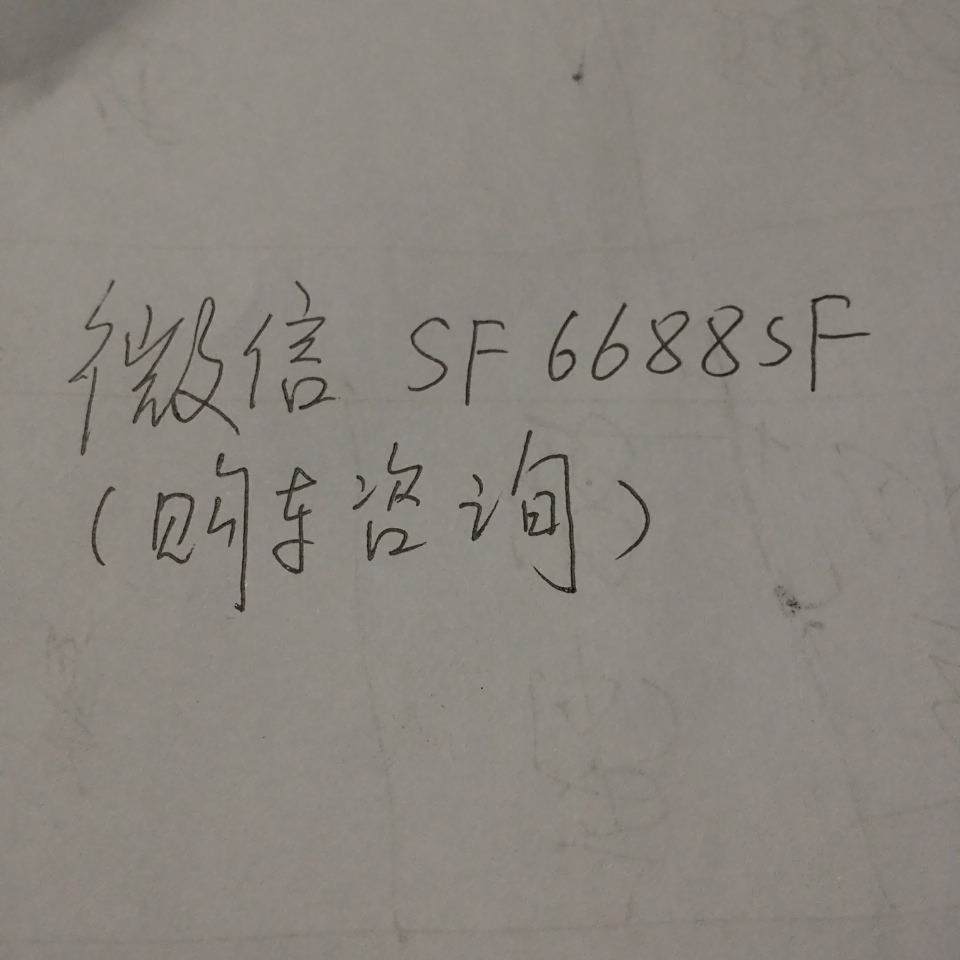 微信 SF6688SF
(购车咨询)